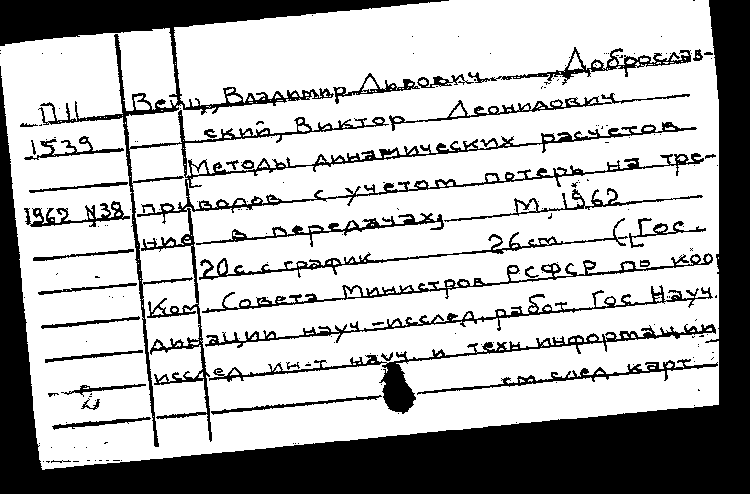 П11 Вейц, Владимир Львович, Доброслав-
1539 ский, Виктор Леонидович
Методы динамических расчетов
1962 N38 приводов с учетом потерь на тре-
ние в передачах, М, 1962
20с. с график 26см ([Гос.
Ком. Совета Министров РСФСР по коор
динации науч.-исслед. работ. Гос. Науч.
исслед. ин-т науч. и техн. информации
2 см. след. карт